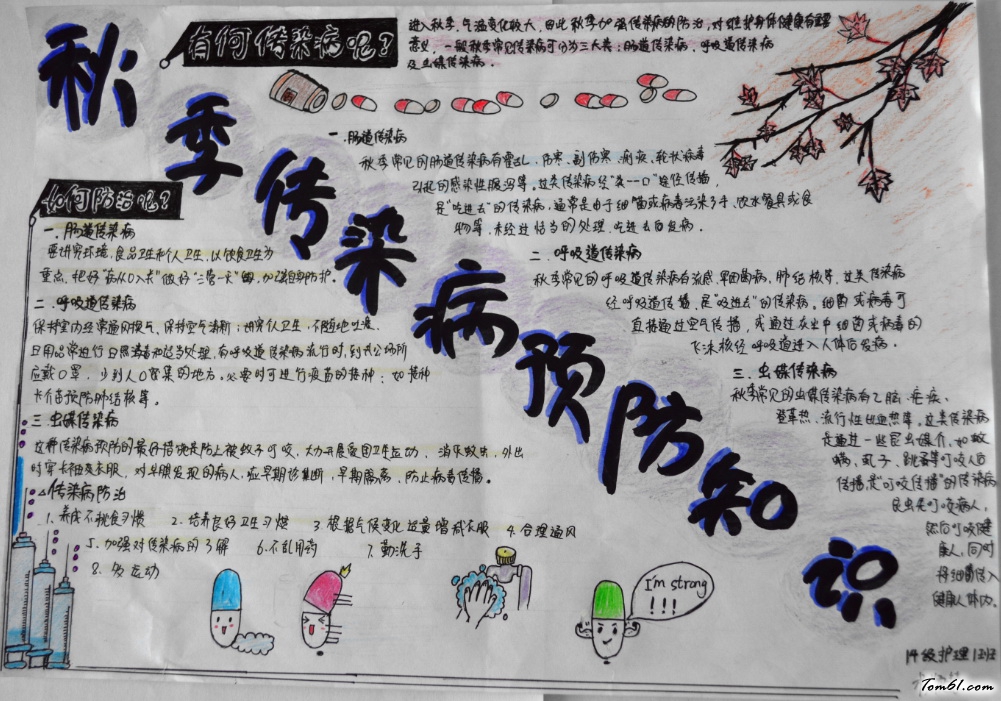 秋季传染病预防知识
有何传染病呢?
进入秋季,气温变化较大,因此秋季加强传染病的防治,对维护身体健康有重要
意义,一般秋季常见传染病可分为三大类:肠道传染病,呼吸道传染病
及虫媒传染病。
一.肠道传染病
秋季常见的肠道传染病有霍乱、伤寒、副伤寒、痢疾、轮状病毒
引起的感染性腹泻等。这类传染病经"粪--口"途径传播,
是"吃进去"的传染病,通常是由于细菌或病毒污染了手、饮水餐具或食
物等,未经过恰当的处理,吃进去而发病。
二.呼吸道传染病
秋季常见的呼吸道传染病有流感、军团菌病、肺结核等,这类传染病
经呼吸道传播,是"吸进去"的传染病。细菌或病毒可
直接通过空气传播,或通过灰尘中细菌或病毒的
飞沫核经呼吸道进入人体后发病。
三.虫媒传染病
秋季常见的虫媒传染病有乙脑、疟疾、
登革热、流行性出血热等。这类传染病
是通过一些昆虫媒介,如蚊
螨、虱子、跳蚤等叮咬人而
传播,是"叮咬传播"的传染病
昆虫先叮咬病人,
然后叮咬健
康人,同时
将细菌传入
健康人体内。
如何防治呢?
一.肠道传染病
要讲究环境、食品卫生和个人卫生,以饮食卫生为
重点,把好"病从口入关"做好"三管一灭",加强自身防护。
二.呼吸道传染病
保持室内经常通风换气,保持空气清新;讲究个人卫生,不随地吐痰,
日用品常进行日照消毒和适当处理,有呼吸道传染病流行时,到公共场所
应戴口罩,少到人口密集的地方。必要时可进行疫苗的接种:如接种
卡介苗预防肺结核等。
三.虫媒传染病
这种传染病预防的最好措施是防止被蚊子叮咬,大力开展爱国卫生运动、消灭蚊虫,外出
时穿长袖类衣服,对早期发现的病人,应早期诊断,早期隔离,防止病毒传播。
传染病防治
1.养成不挑食习惯 2.培养良好卫生习惯 3.根据气候变化适量增减衣服 4.合理通风
5.加强对传染病的了解 6.不乱用药 7.勤洗手
8.多运动
I'm strong
!!!
14级护理1班
Tom61.com